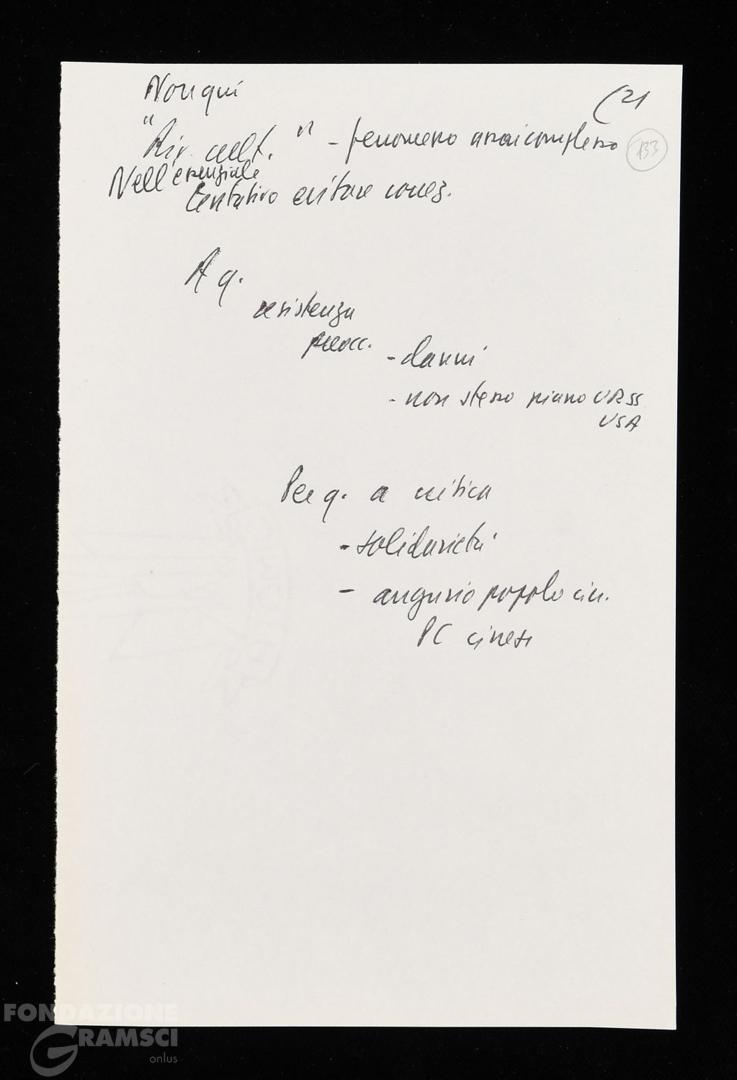 Non qui
(21
"Riv. cult." - fenomeno assai complesso
133
Nell'essenziale
tentativo evitare coes.
A q.
resistenza
preocc.
- danni
- non stesso piano URSS
USA
Per q. a critica
- solidarietà
- augurio popolo cin.
PC cinese
FONDAZIONE
GRAMSCI
onlus